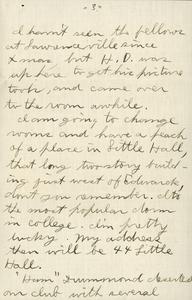 3
I haven't seen the fellows
at Lawrenceville since
Xmas, but H. D. was
up here to get his picture
took, and came over
to the room awhile.
I am going to change
rooms and have a peach
of a place in Little Hall,
that long two story build-
ing just west of Edwards,
don't you remember. It's
the most popular dorm
in college. I'm pretty
lucky. My address
then will be 44 Little
Hall.
"Ham" Drummond deserted
our club with several